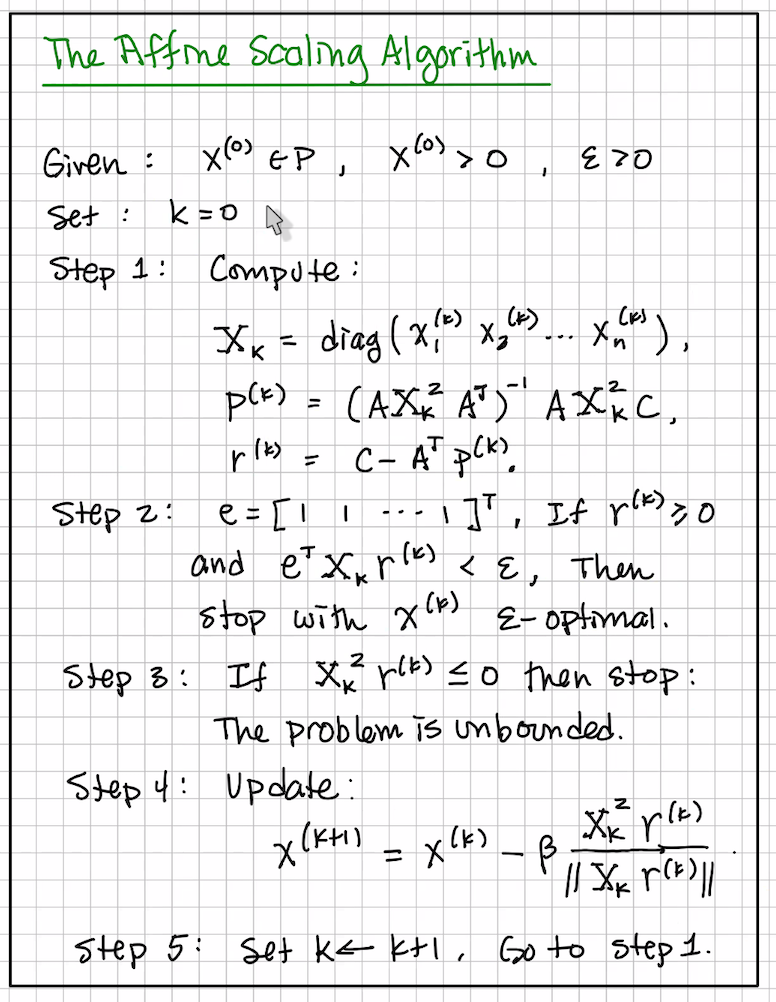 The Affine Scaling Algorithm
Given : x^(0) ∈ P , x^(0) > 0 , ε > 0
Set : k = 0
Step 1 : Compute :
X_k = diag ( x_1^(k) x_2^(k) ... x_n^(k) ) ,
p^(k) = ( A X_k^2 A^T )^-1 A X_k^2 C ,
r^(k) = C - A^T p^(k) .
Step 2 : e = [ 1 1 ... 1 ]^T , If r^(k) ≥ 0
and e^T X_k r^(k) < ε , Then
stop with x^(k) ε-optimal .
Step 3 : If X_k^2 r^(k) ≤ 0 then stop :
The problem is unbounded .
Step 4 : Update :
x^(k+1) = x^(k) - β X_k^2 r^(k) / || X_k r^(k) || .
Step 5 : Set k ← k+1 . Go to step 1 .